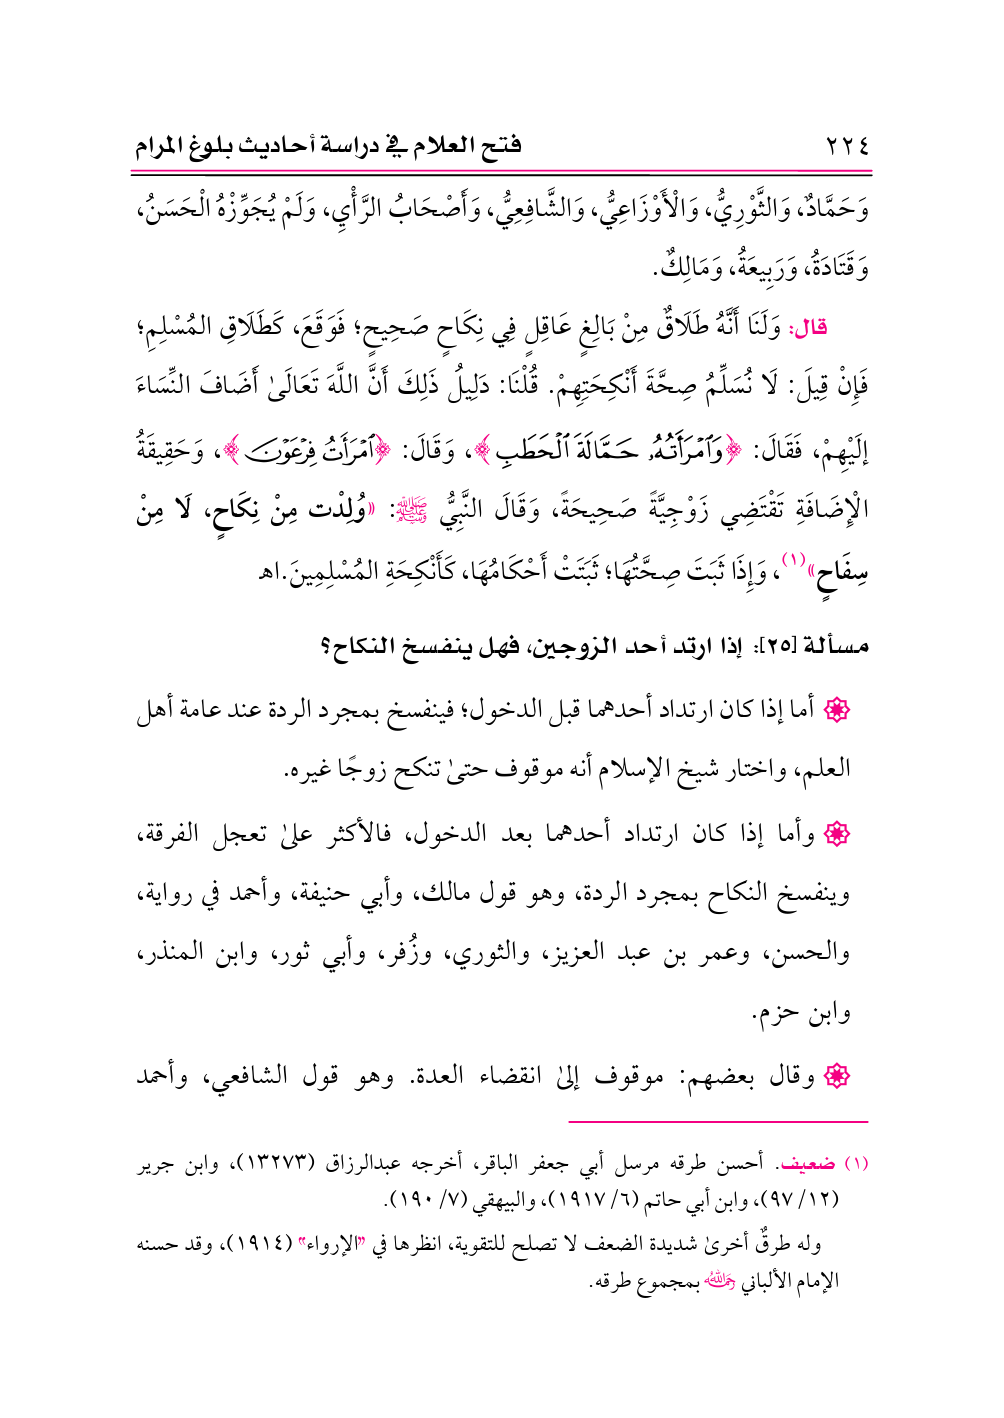 ٢٢٤ فتح العلام في دراسة أحاديث بلوغ المرام
وَحَمَّادٌ، وَالثَّوْرِيُّ، وَالْأَوْزَاعِيُّ، وَالشَّافِعِيُّ، وَأَصْحَابُ الرَّأْيِ، وَلَمْ يُجَوِّزْهُ الْحَسَنُ،
وَقَتَادَةُ، وَرَبِيعَةُ، وَمَالِكٌ.
قال: وَلَنَا أَنَّهُ طَلَاقٌ مِنْ بَالِغٍ عَاقِلٍ فِي نِكَاحٍ صَحِيحٍ؛ فَوَقَعَ، كَطَلَاقِ المُسْلِمِ؛
فَإِنْ قِيلَ: لَا نُسَلِّمُ صِحَّةَ أَنْكِحَتِهِمْ. قُلْنَا: دَلِيلُ ذَلِكَ أَنَّ اللَّهَ تَعَالَىٰ أَضَافَ النِّسَاءَ
إلَيْهِمْ، فَقَالَ: ﴿وَٱمْرَأَتُهُۥ حَمَّالَةَ ٱلْحَطَبِ﴾، وَقَالَ: ﴿ٱمْرَأَتُ فِرْعَوْنَ﴾، وَحَقِيقَةُ
الْإِضَافَةِ تَقْتَضِي زَوْجِيَّةً صَحِيحَةً، وَقَالَ النَّبِيُّ ﷺ: «وُلِدْت مِنْ نِكَاحٍ، لَا مِنْ
سِفَاحٍ»(١)، وَإِذَا ثَبَتَ صِحَّتُهَا؛ ثَبَتَتْ أَحْكَامُهَا، كَأَنْكِحَةِ المُسْلِمِينَ.اهـ
مسألة [٢٥]: إذا ارتد أحد الزوجين، فهل ينفسخ النكاح؟
أما إذا كان ارتداد أحدهما قبل الدخول؛ فينفسخ بمجرد الردة عند عامة أهل
العلم، واختار شيخ الإسلام أنه موقوف حتىٰ تنكح زوجًا غيره.
وأما إذا كان ارتداد أحدهما بعد الدخول، فالأكثر علىٰ تعجل الفرقة،
وينفسخ النكاح بمجرد الردة، وهو قول مالك، وأبي حنيفة، وأحمد في رواية،
والحسن، وعمر بن عبد العزيز، والثوري، وزُفر، وأبي ثور، وابن المنذر،
وابن حزم.
وقال بعضهم: موقوف إلىٰ انقضاء العدة. وهو قول الشافعي، وأحمد
(١) ضعيف. أحسن طرقه مرسل أبي جعفر الباقر، أخرجه عبدالرزاق (١٣٢٧٣)، وابن جرير
(١٢/ ٩٧)، وابن أبي حاتم (٦/ ١٩١٧)، والبيهقي (٧/ ١٩٠).
وله طرقٌ أخرىٰ شديدة الضعف لا تصلح للتقوية، انظرها في "الإرواء" (١٩١٤)، وقد حسنه
الإمام الألباني رحمه الله بمجموع طرقه.